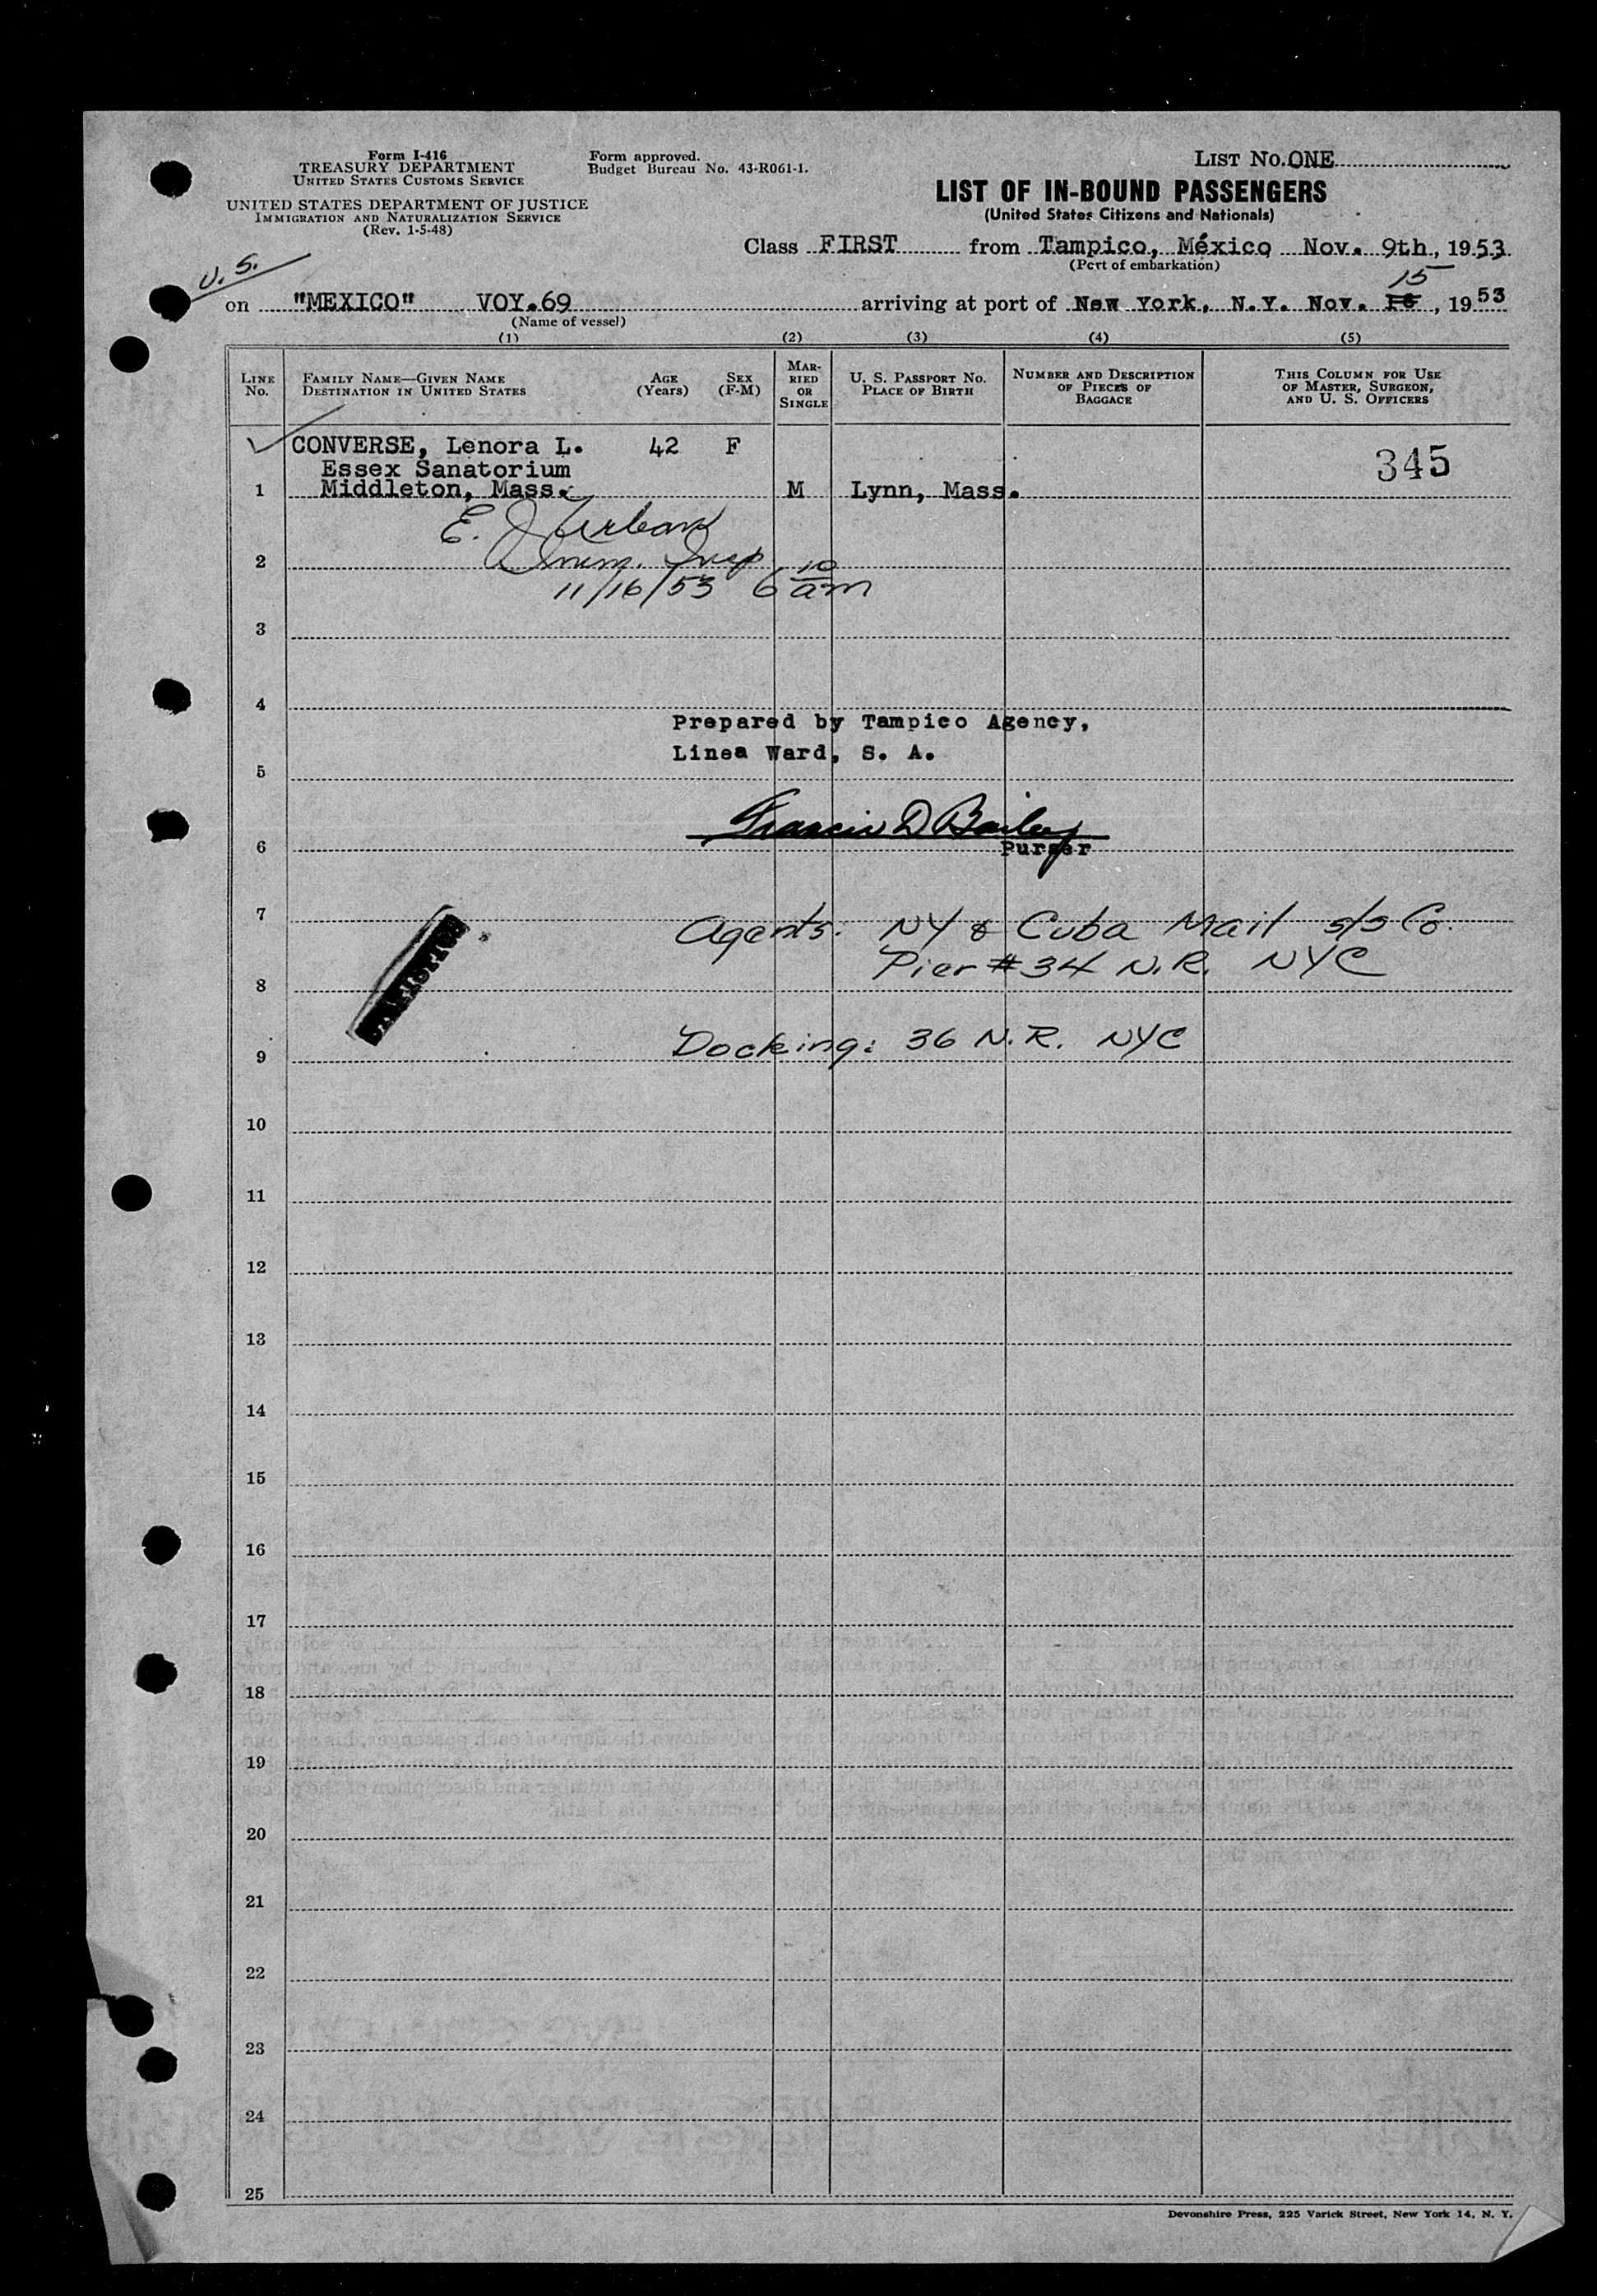 Form I-416
TREASURY DEPARTMENT
UNITED STATES CUSTOMS SERVICE
UNITED STATES DEPARTMENT OF JUSTICE
IMMIGRATION AND NATURALIZATION SERVICE
(Rev. 1-5-48)
Form approved.
Budget Bureau No. 43-R061-1.
LIST NO. ONE
LIST OF IN-BOUND PASSENGERS
(United States Citizens and Nationals)
Class FIRST from Tampico, México Nov. 9th, 1953
(Port of embarkation)
U.S.
15
on "MEXICO" VOY.69 arriving at port of New York, N.Y. Nov. 16, 1953
(Name of vessel)
(1) (2) (3) (4) (5)
LINE No.
FAMILY NAME—GIVEN NAME
DESTINATION IN UNITED STATES
AGE (Years)
SEX (F-M)
MARRIED OR SINGLE
U. S. PASSPORT NO.
PLACE OF BIRTH
NUMBER AND DESCRIPTION OF PIECES OF BAGGAGE
THIS COLUMN FOR USE OF MASTER, SURGEON, AND U. S. OFFICERS
CONVERSE, Lenora L. 42 F
345
Essex Sanatorium
1 Middleton, Mass. M Lynn, Mass.
E. J. Urban
2 Imm. Insp
11/16/53 6 10 am
3
4
Prepared by Tampico Agency,
Linea Ward, S. A.
5
Francis D Bailey
6 Purser
7
Agents: NY & Cuba Mail s/s Co.
Pier #34 N.R. NYC
8
Docking: 36 N.R. NYC
9
10
11
12
13
14
15
16
17
18
19
20
21
22
23
24
25
Devonshire Press, 225 Varick Street, New York 14, N. Y.